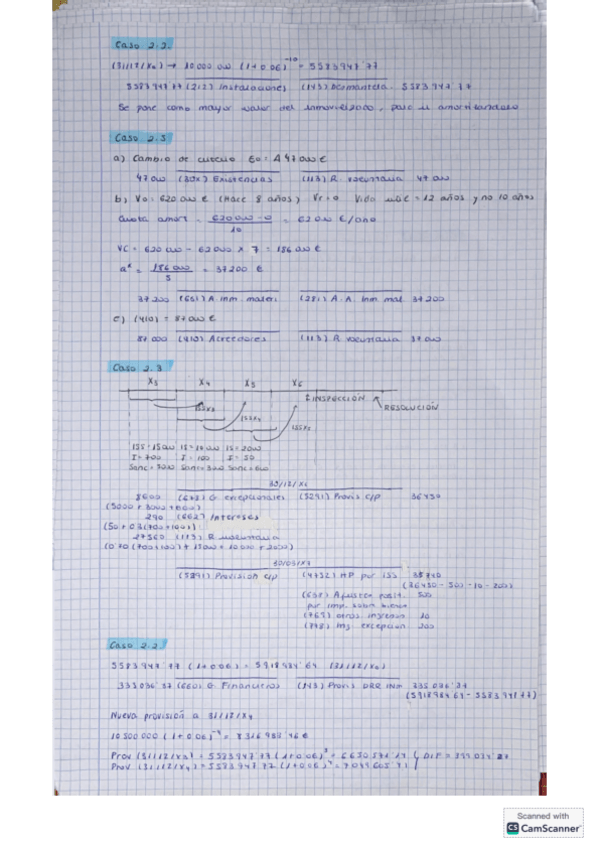 Caso 2.2.
(31/12/X0) → 10 000 000 (1+0'06)^-10 = 5583947'77
5583947'77 (212) Instalaciones (143) Desmantela. 5583947'77
Se pone como mayor valor del inmovilizado, para ir amortizándolo
Caso 2.5
a) Cambio de criterio Eo = A 47000 €
47000 (30X) Existencias (113) R. voluntaria 47000
b) Vo = 620000 € (Hace 8 años) Vr = 0 Vida útil = 12 años y no 10 años
Cuota amort = 620000 - 0 / 10 = 62000 €/año
VC = 620000 - 62000 × 7 = 186000 €
a* = 186000 / 5 = 37200 €
37200 (681) A. inm. materi. (281) A. A. Inm mat. 37200
c) (410) = 87000 €
87000 (410) Acreedores (113) R. voluntaria
Caso 2.3
X3 X4 X5 X6
INSPECCIÓN
RESOLUCIÓN
I = 700 I = 100 I = 50
31/12/X
(678) G. excepcionales (5291) Provis c/p 36450
(662) Intereses
27560 (113) R. voluntaria
(5291) Provision c/p (4752) HP por ISS 35740
(36450 - 500 - 10 - 200)
(638) Ajustes posit. 500
por imp. sobre benef
(769) otros ingresos 10
(778) Ing excepcion. 200
Caso 2.2.
5583947'77 (1+0'06) = 5918984'64 (31/12/X1)
335036'87 (660) G. Financieros (143) Provis DRR INM 335036'87
(5918984'64 - 5583947'77)
Nueva provisión a 31/12/X4
Prov (31/12/X3) = 5583947'77 (1+0'06)^3 =
Prov. (31/12/X4) = 5583947'77 (1+0'06)^4 =
Scanned with
CS CamScanner